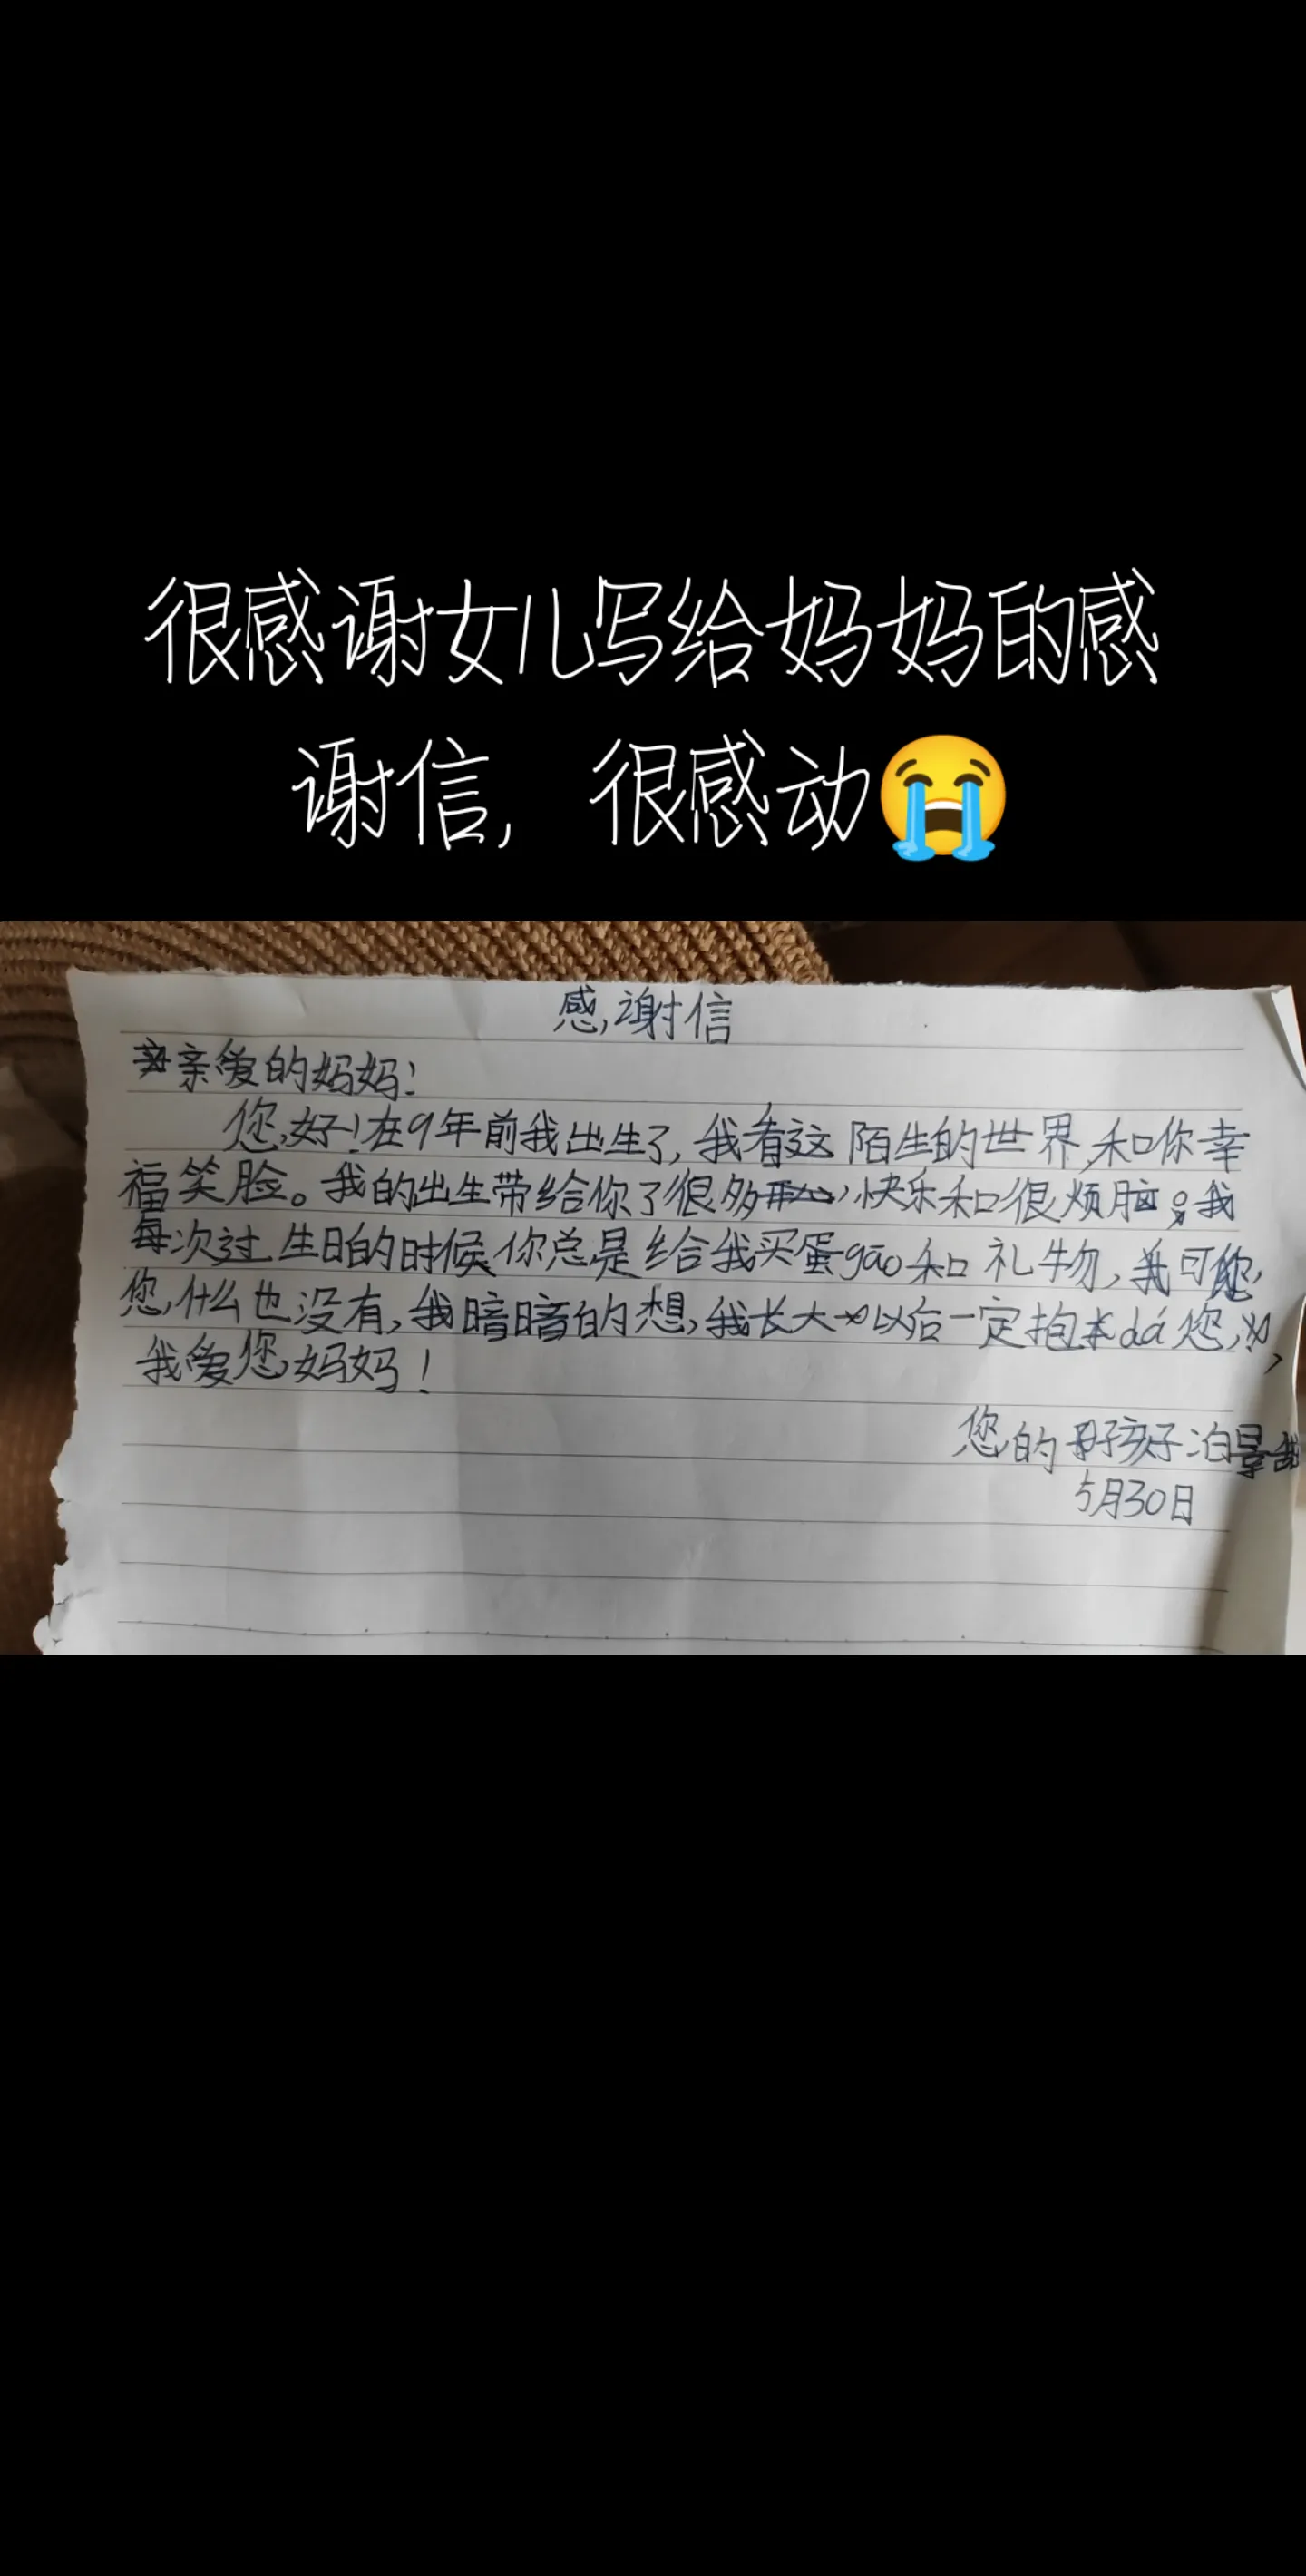 很感谢女儿写给妈妈的感
谢信，很感动😭
感谢信
亲爱的妈妈：
您好！在9年前我出生了，我看这陌生的世界，和你幸
福笑脸。我的出生带给你了很多快乐和很烦脑。我
每次过生日的时候你总是给我买蛋gāo和礼物，可
您什么也没有，我暗暗的想，我长大以后一定抱dá您，
我爱您妈妈！
您的好孩子
5月30日